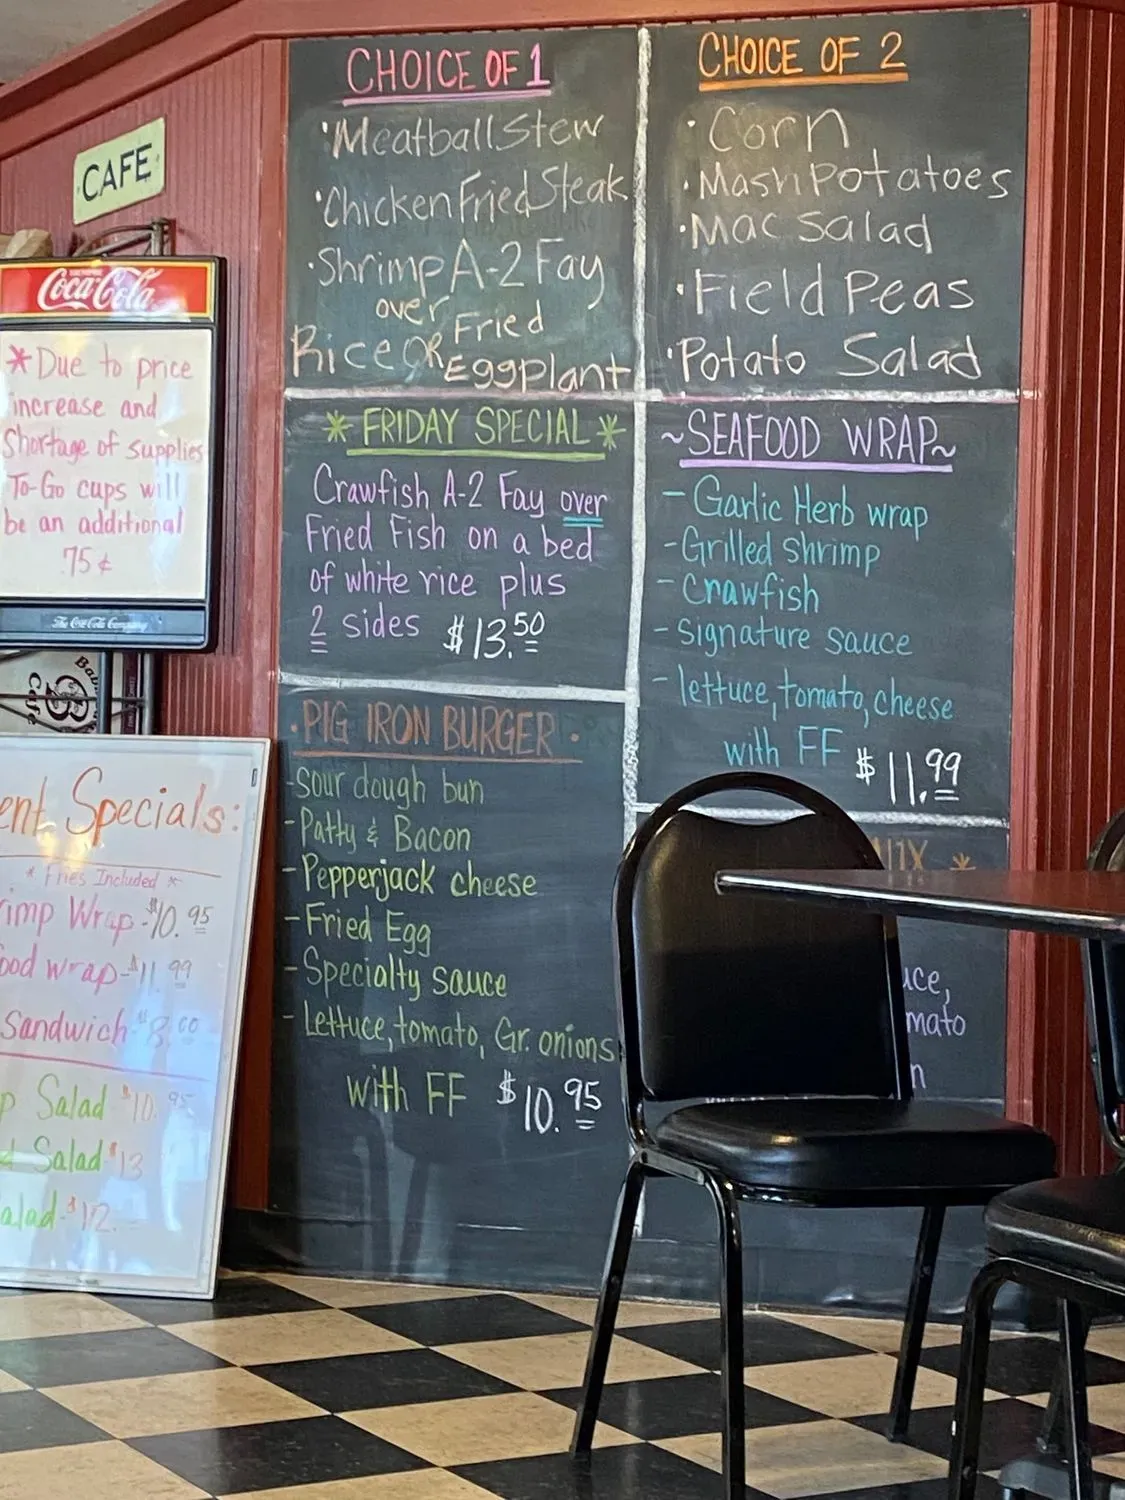 CAFE
Coca-Cola
* Due to price
increase and
Shortage of supplies
To-Go cups will
be an additional
.75¢
The Coca-Cola Company
Café
Specials:
* Fries Included *
Wrap - $10.95
wrap - $11.99
Sandwich $8.00
Salad $10.95
Salad $13
$12.
CHOICE OF 1
• Meatball Stew
• Chicken Fried Steak
• Shrimp A-2 Fay
over
Rice OR Fried
Eggplant
CHOICE OF 2
• Corn
• Mash Potatoes
• Mac Salad
• Field Peas
• Potato Salad
* FRIDAY SPECIAL *
Crawfish A-2 Fay over
Fried Fish on a bed
of white rice plus
2 sides $13.50
~SEAFOOD WRAP~
- Garlic Herb wrap
- Grilled Shrimp
- Crawfish
- Signature sauce
- lettuce, tomato, cheese
with FF $11.99
• PIG IRON BURGER •
- sour dough bun
- Patty & Bacon
- Pepperjack cheese
- Fried Egg
- Specialty sauce
- Lettuce, tomato, Gr. onions
with FF $10.95